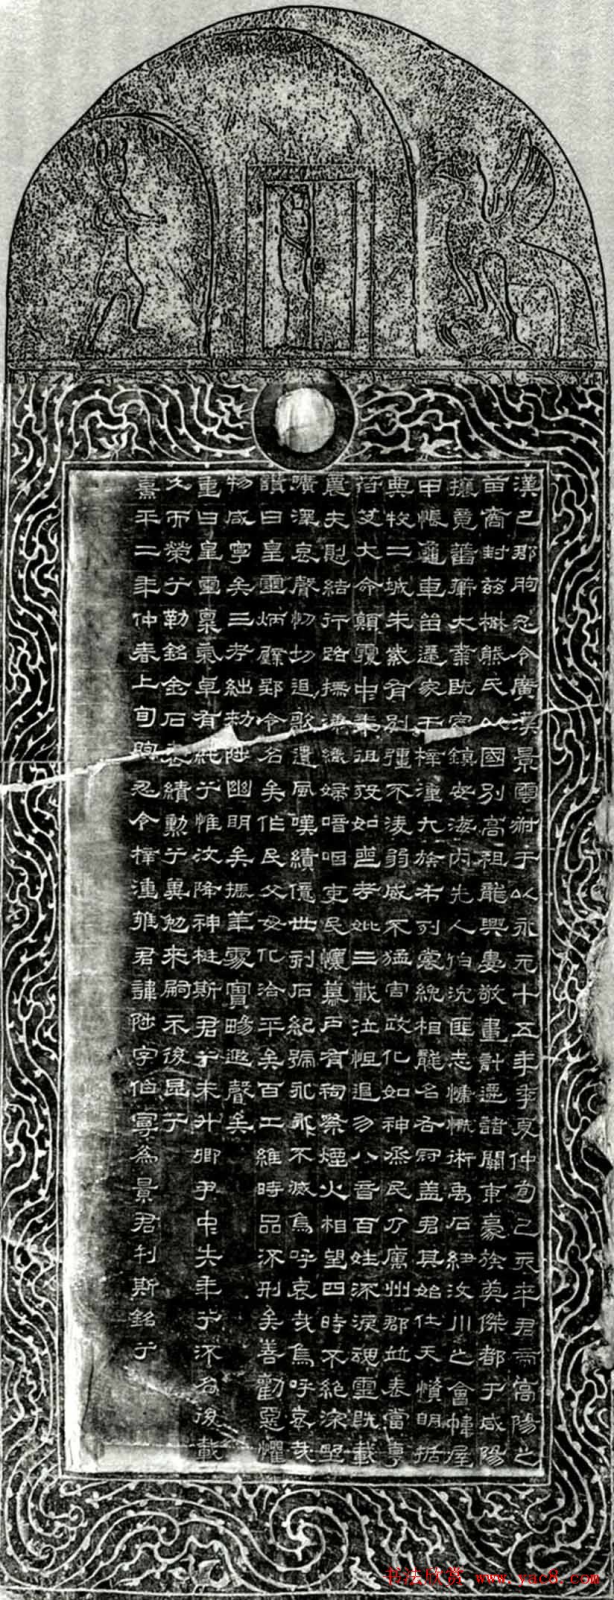 漢巴郡朐忍令廣漢景雲叔于以永元十五年季夏仲旬己亥卒君帝高陽之
苗裔封茲楚熊氏以國別高祖龍興婁敬畫計遷諸關東豪族英傑都于咸陽
攘竟蕃衛大業既定鎮安海內先人伯沇匪志慷慨術禹石紐汶川之會幃屋
甲帳龜車留遰家于梓潼九族布列裳絻相龍名右冠蓋君其始仕天資明括
典牧二城朱紫有別強不淩弱威不猛害政化如神烝民乃厲州郡並表當亨
符艾大命顛覆中年徂歿如喪考妣三載泣怛遏勿八音百姓流淚魂靈既載
農夫惻結行路撫涕織婦喑咽吏民懷慕戶有祠祭煙火相望四時不絕深野
曠澤哀聲忉切追歌遺風嘆績億世刻石紀號永永不滅烏呼哀哉烏呼哀哉
讚曰皇靈炳璧郢令名矣作民父母化洽平矣百工維時品流刑矣善勸惡懼
物咸寧矣三考絀敕陟幽明矣振華處實暘遐聲矣
重曰皇靈稟氣卓有純兮惟汶降神梃斯君兮未升卿尹中失年兮流名後載
久而榮兮勒銘金石表績勳兮冀勉來嗣示後昆兮
熹平二年仲春上旬朐忍令梓潼雍君諱陟字伯寧為景君刊斯銘兮
书法欣赏 www.yac8.com